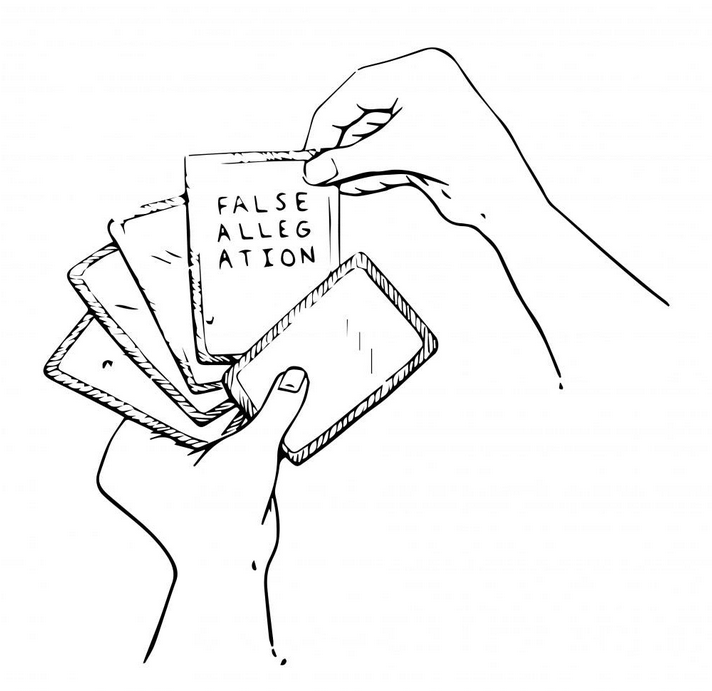 FALSE
ALLEG
ATION